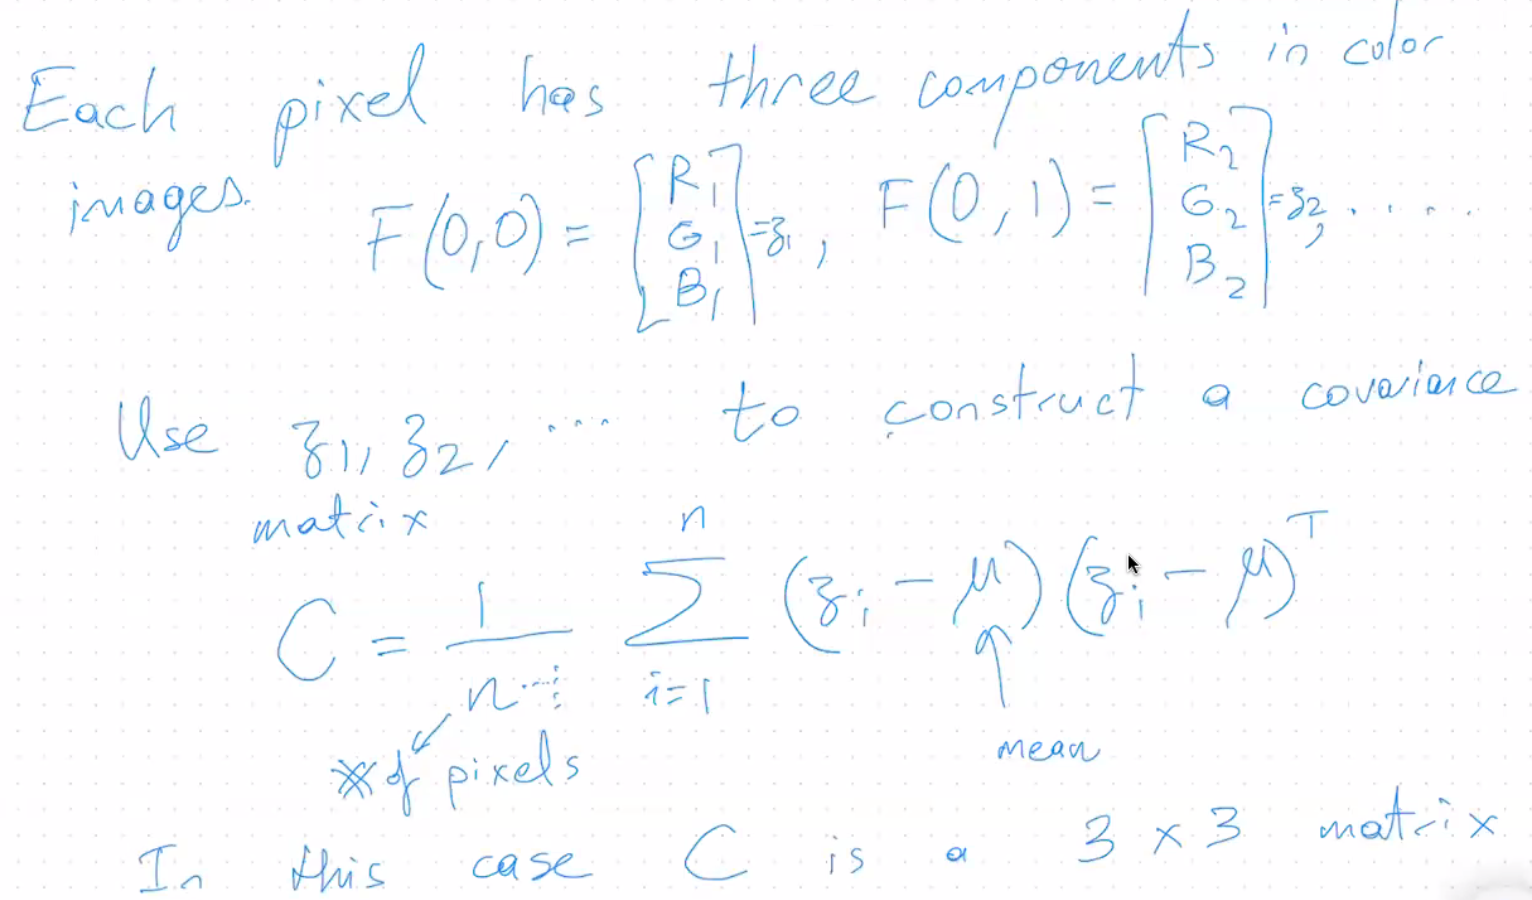 Each pixel has three components in color
images. F(0,0) = [R₁ G₁ B₁] = z₁, F(0,1) = [R₂ G₂ B₂] = z₂, .....
Use z₁, z₂, ... to construct a covariance
matrix
C = 1/n ∑ᵢ₌₁ⁿ (zᵢ - μ)(zᵢ - μ)ᵀ
# of pixels
mean
In this case C is a 3 x 3 matrix